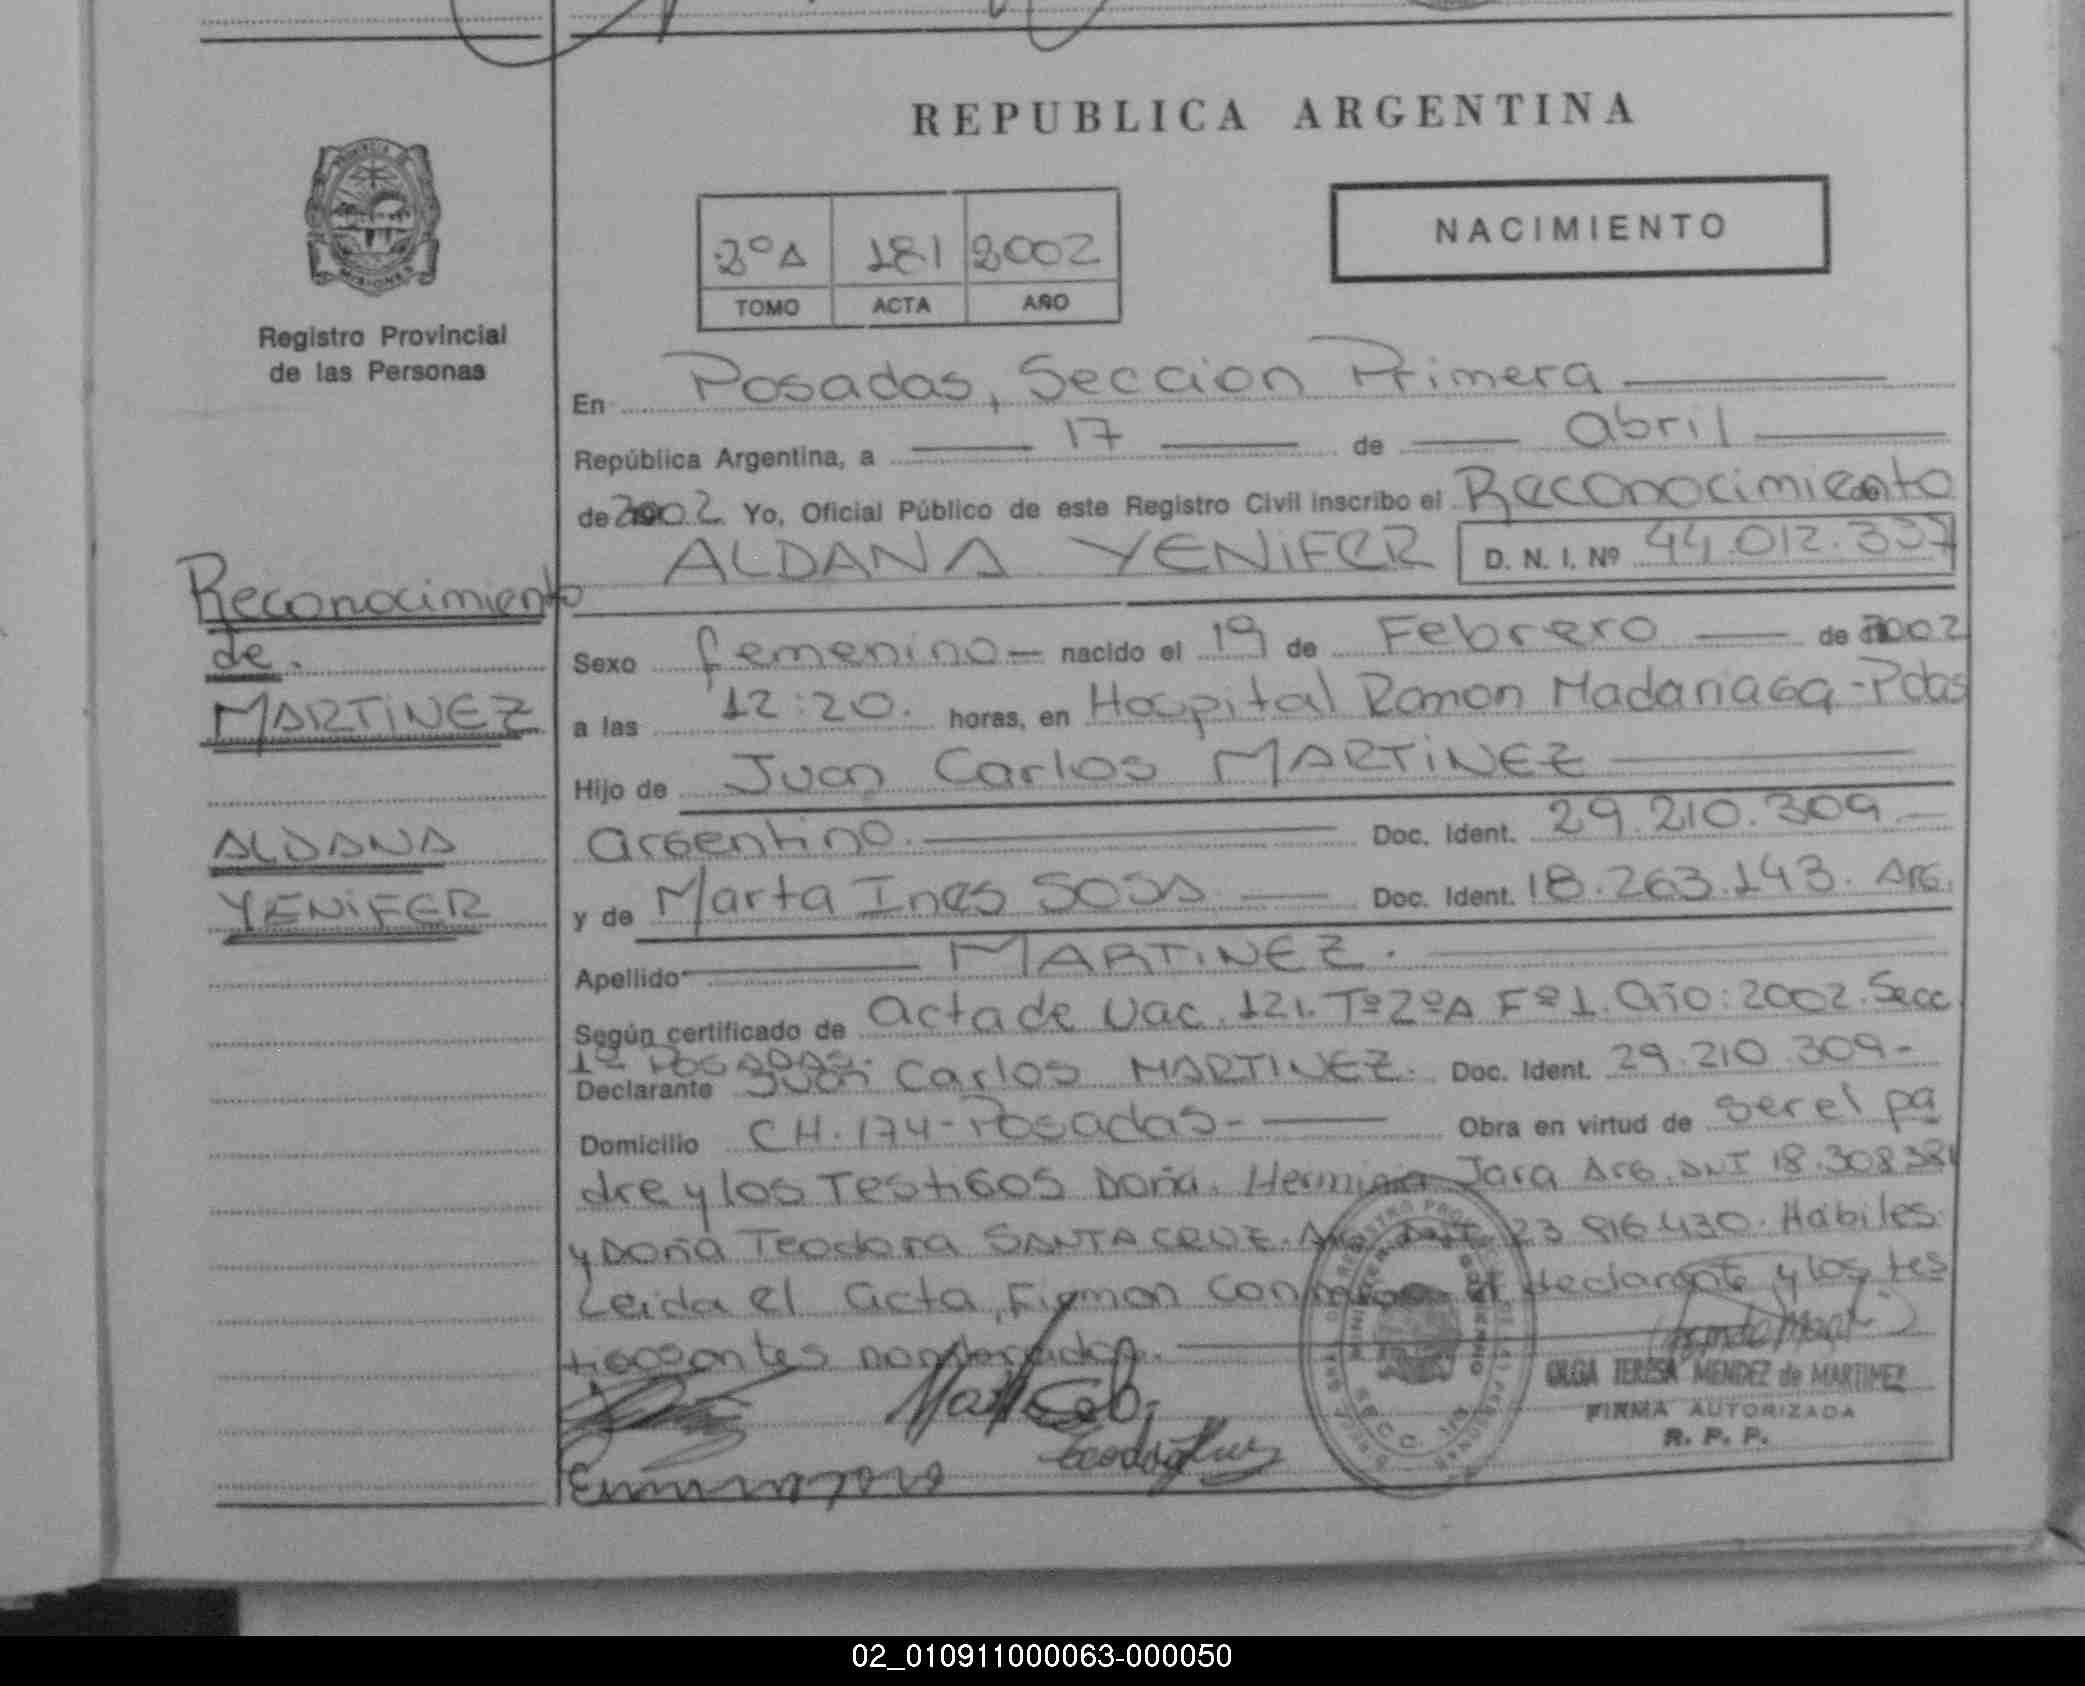 REPUBLICA ARGENTINA
NACIMIENTO
2º A 181 2002
TOMO ACTA AÑO
Registro Provincial
de las Personas
En Posadas, Seccion Primera
República Argentina, a 17 de abril
de 2002 Yo, Oficial Público de este Registro Civil inscribo el Reconocimiento
ALDANA YENiFER D. N. I. Nº 44.012.337
Reconocimiento
de.
MARTiNEZ
ALDANA
YENiFER
Sexo femenino nacido el 19 de Febrero de 2002
a las 12:20. horas, en Hospital Ramon Madariaga-Pdas
Hijo de Juan Carlos MARTiNEZ
argentino. Doc. Ident. 29.210.309
y de Marta Ines SOSA Doc. Ident. 18.263.143. Arg.
Apellido MARTiNEZ.
Según certificado de acta de Nac. 121. Tº2ºA Fº1. año: 2002. Secc
1º POSADAS.
Declarante Juan Carlos MARTINEZ. Doc. Ident. 29.210.309-
Domicilio CH. 174-Posadas- Obra en virtud de ser el pa
dre y los Testigos Doña. Herminia Jara Arg. DNI 18.308.381
y Doña Teodora SANTACRUZ. Arg. DNI 23 816.430. Habiles.
Leida el acta, Firman conmigo el declarante y los tes
tigos antes nombrados.
OLGA TERESA MENDEZ de MARTINEZ
FIRMA AUTORIZADA
R. P. P.
02_010911000063-000050